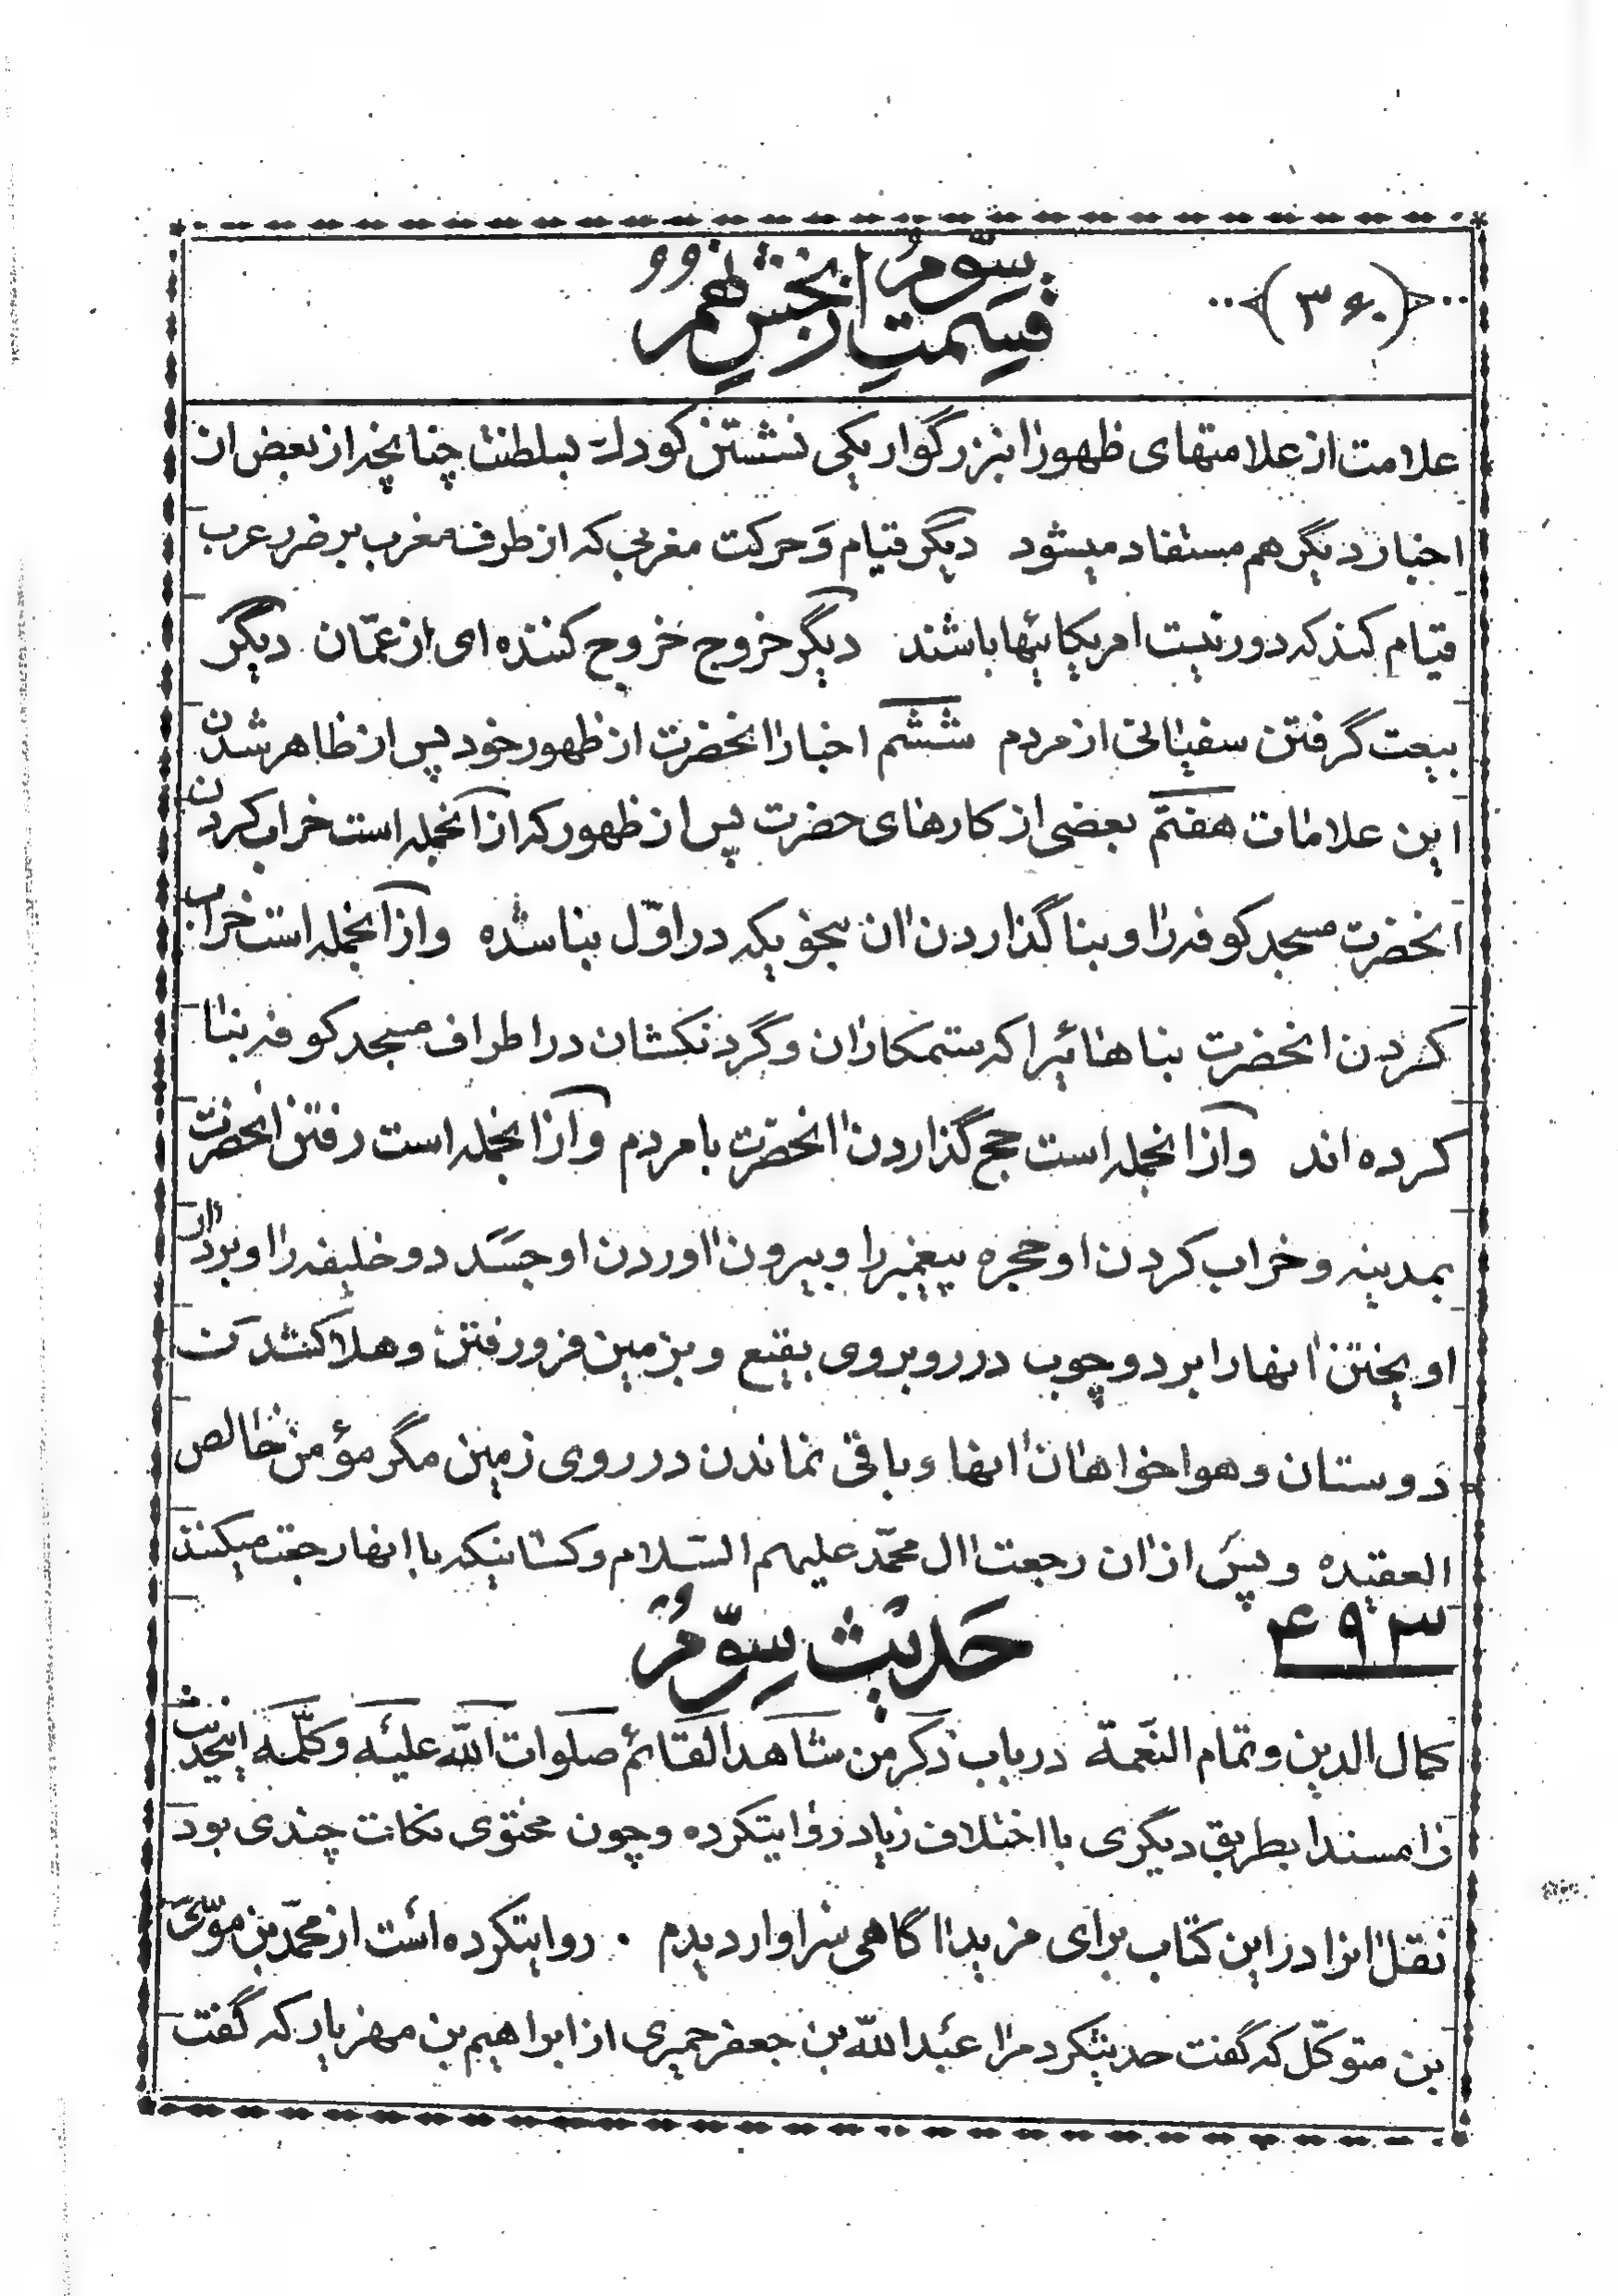 ﴿۳۶۰﴾
قسمت سوم از بخش نهم
علامت از علامتهای ظهور انبزرگوار یکی نشستن کودک بسلطنت چنانچه از بعض از
اخبار دیگر هم مستفاد میشود دیگر قیام و حرکت مغربی که از طرف مغرب بر ضرر عرب
قیام کند که دور نیست امریکائیها باشند دیگر خروج خروج کننده ای از عمّان دیگر
بیعت گرفتن سفیانی از مردم ششم اخبار انحضرت از ظهور خود پس از ظاهر شدن
این علامات هفتم بعضی از کارهای حضرت پس از ظهور که از آنجمله است خراب کردن
انحضرت مسجد کوفه را و بنا گذاردن ان بنحویکه در اوّل بنا شده و از انجمله است خراب
کردن انحضرت بناهائیرا که ستمکاران و گردنکشان در اطراف مسجد کوفه بنا
کرده اند و از انجمله است حج گذاردن انحضرت با مردم و از انجمله است رفتن انحضرت
بمدینه و خراب کردن او حجره پیغمبر را و بیرون اوردن او جسد دو خلیفه را و بردار
اویختن انها را بر دو چوب در روبروی بقیع و بزمین فرو رفتن و هلاک شدن
دوستان و هواخواهان انها و باقی نماندن در روی زمین مگر مؤمن خالص
العقیده و پس از ان رجعت ال محمّد علیهم السّلام و کسانیکه با انها رجعت میکنند
۴۹۳ حدیث سوّم
کمال الدین و تمام النعمة در باب ذکر من شاهد القائم صلوات اللّه علیه و کلّمه اینحدیث
را مسندا بطریق دیگری با اختلاف زیاد روایتکرده و چون محتوی نکات چندی بود
نقل انرا در این کتاب برای مزید اگاهی سزاوار دیدم . روایتکرده است از محمّد بن موسی
بن متوکّل که گفت حدیثکرد مرا عبد اللّه بن جعفر حمیری از ابراهیم بن مهزیار که گفت